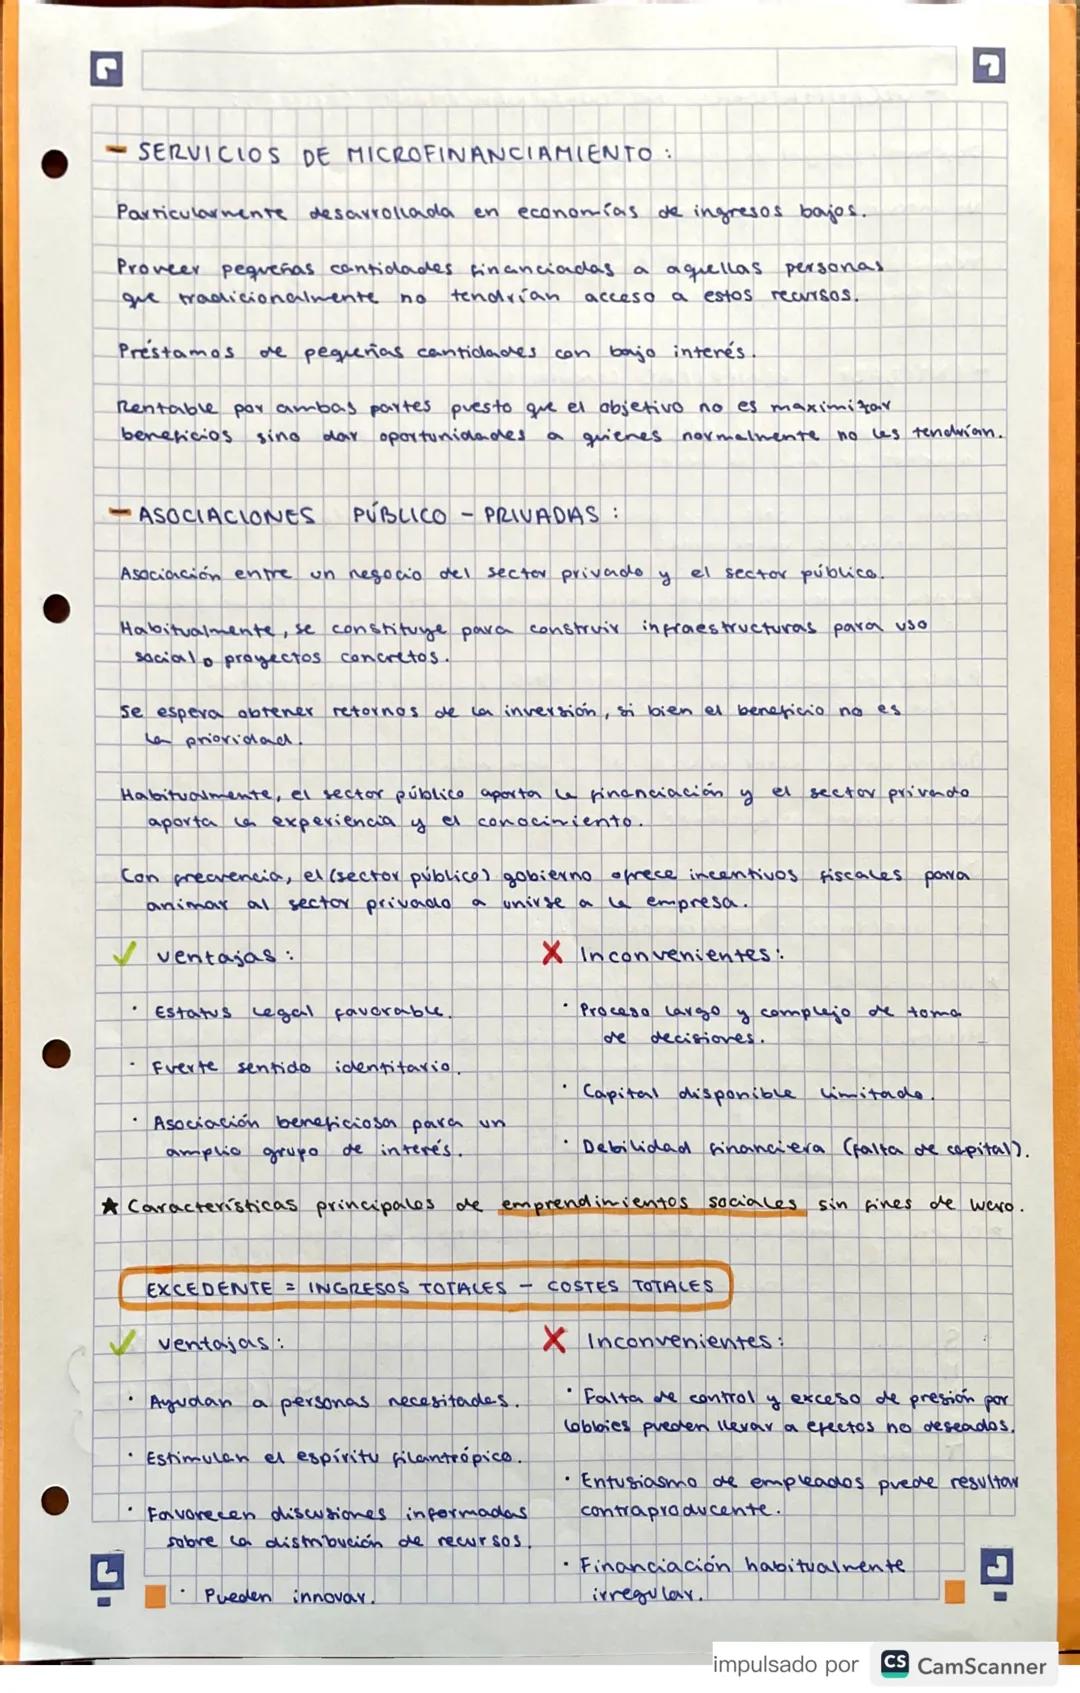 - SERVICIOS DE MICROFINANCIAMIENTO :
Particularmente desarrollada en economías de ingresos bajos.
Proveer pequeñas cantidades financiadas a aquellas personas
que tradicionalmente no tendrían acceso a estos recursos.
Préstamos de pequeñas cantidades con bajo interés.
Rentable por ambas partes puesto que el objetivo no es maximizar
beneficios sino dar oportunidades a quienes normalmente no les tendrían.
- ASOCIACIONES PÚBLICO - PRIVADAS :
Asociación entre un negocio del sector privado y el sector público.
Habitualmente, se constituye para construir infraestructuras para uso
social o proyectos concretos.
Se espera obtener retornos de la inversión, si bien el beneficio no es
la prioridad.
Habitualmente, el sector público aporta la financiación y el sector privado
aporta la experiencia y el conocimiento.
Con frecuencia, el (sector público) gobierno ofrece incentivos fiscales para
animar al sector privado a unirse a la empresa.
✓ ventajas :
· Estatus legal favorable.
· Fuerte sentido identitario.
· Asociación beneficiosa para un
amplio grupo de interés.
X Inconvenientes :
· Proceso largo y complejo de toma
de decisiones.
· Capital disponible limitado.
· Debilidad financiera (falta de capital).
★ Características principales de emprendimientos sociales sin fines de lucro.
EXCEDENTE = INGRESOS TOTALES - COSTES TOTALES
✓ ventajas :
· Ayudan a personas necesitadas.
· Estimulan el espíritu filantrópico.
· Favorecen discusiones informadas
sobre la distribución de recursos.
· Pueden innovar.
X Inconvenientes :
· Falta de control y exceso de presión por
lobbies pueden llevar a efectos no deseados.
· Entusiasmo de empleados puede resultar
contraproducente.
· Financiación habitualmente
irregular.
impulsado por CS CamScanner